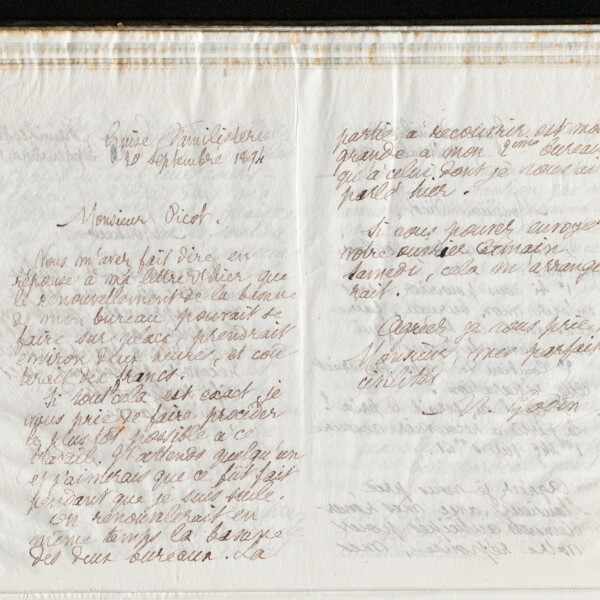 Guise Familistère
20 Septembre 1894
Monsieur Picot.
Vous m'avez fait dire, en
réponse à ma lettre d'hier que
le renouvellement de la
de mon bureau pourrait se
faire sur place, prendrait
environ deux heures, et coû
terait dix francs.
Si tout cela est exact, je
vous prie de faire procéder
le plus tôt possible à ce
travail. J'attends quelqu'un
et j'aimerais que ce fût fait
pendant que je suis seule.
On renouvelerait en
même temps la basane
des deux bureaux. La
partie à recouvrir est moins
grande à mon 2ème bureau
qu'à celui dont je vous ai
parlé hier.
Si vous pouvez envoyer
votre ouvrier demain
Samedi, cela m'arrange
rait.
Agréez je vous prie,
Monsieur, mes parfaites
civilités